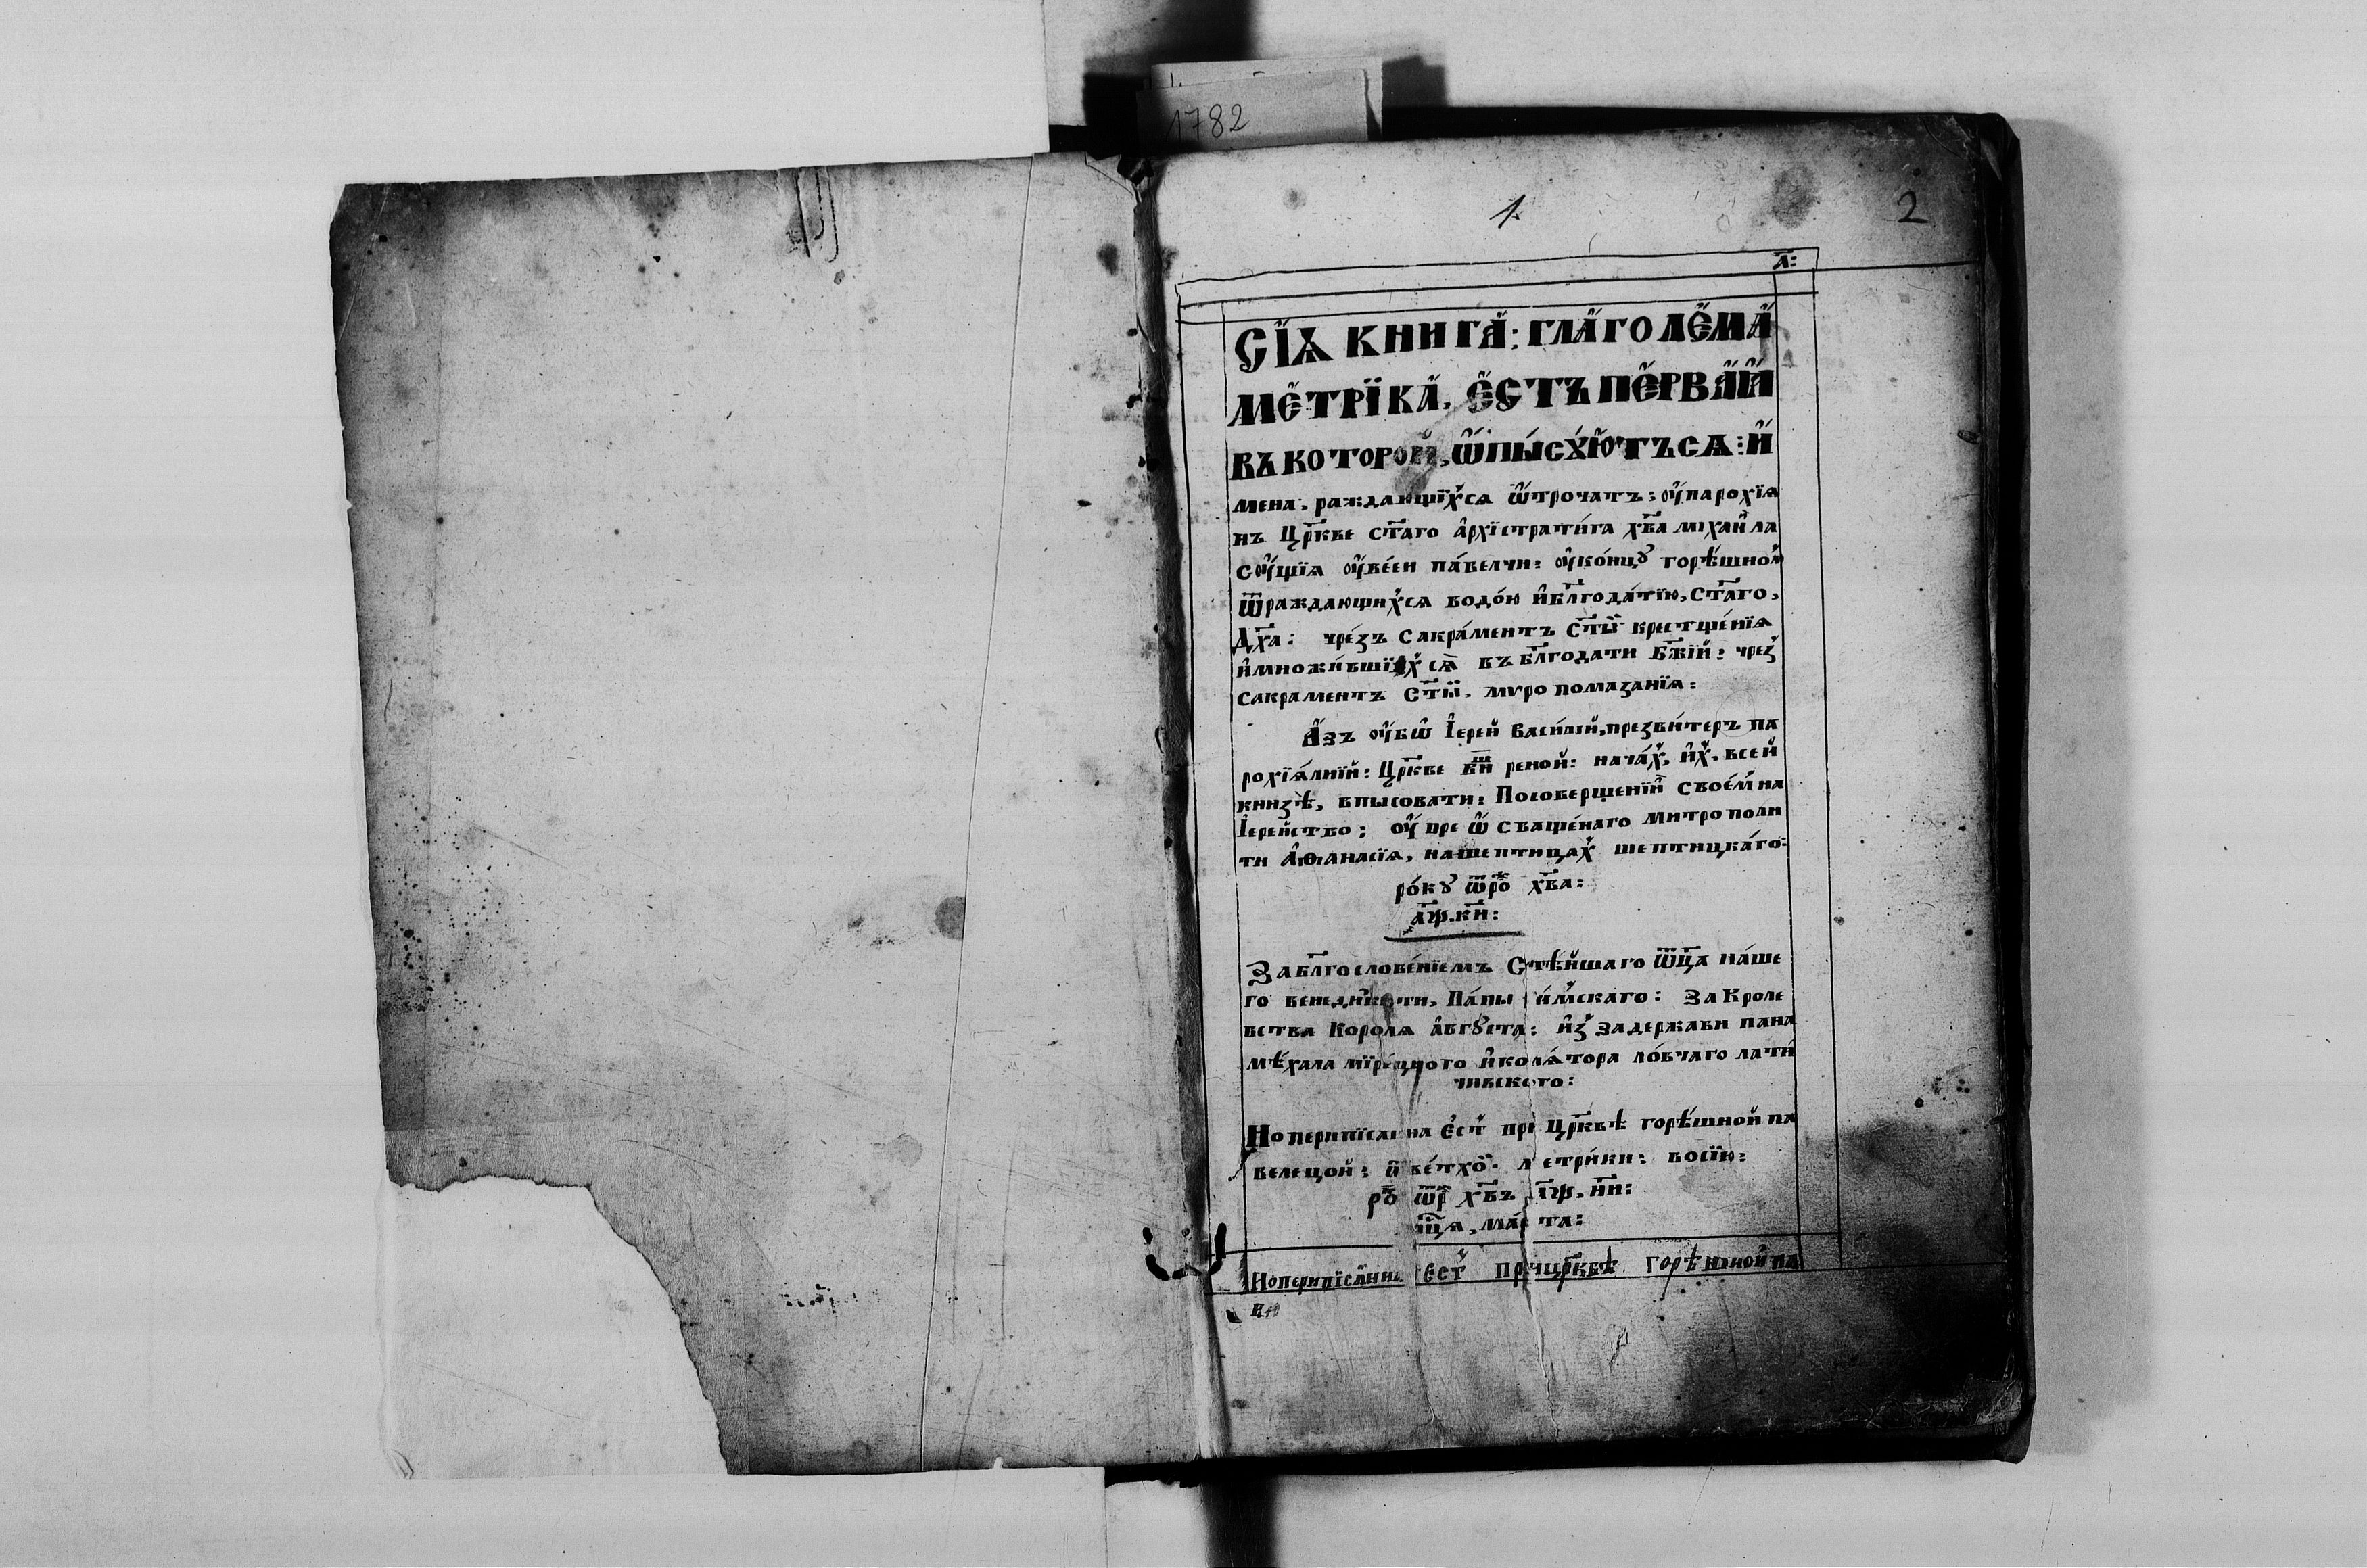 1782
1
2
а҃:
СЇѦ КНИГА: ГЛАГОЛЕМА
МЕТРЇКА, ЕСТЪ ПЕРВАѦ
ВЪ КОТОРОЙ, ѾПЫСУЮТЪСѦ: И
мена, раждающїхсѧ ѿтрочатъ: оу парохїѧ
нъ Цр҃кве ст҃аго архїстратига хв҃а міхаила
соущїѧ оу веси павелчи: оу концу горѣшном
ѿраждающихсѧ водою и бл҃годатїю, ст҃аго,
Дх҃а: чрезъ сакраментъ ст҃ый крестщенїѧ
и множившїхсѧ въ бл҃годати Бж҃їй: чрез
сакраментъ Ст҃ый, мѵропомазанїѧ:
Азъ оубѡ Іерей Василий, презвитеръ па
рохїѧлнїй: Цр҃кве реной: начах, их, всей
книзѣ, впысовати: По совершенїи своем на
Іерейство: оу преѡсващенаго митрополи
ти Аѳанасїѧ, на шептицах шептицкаго:
року ѿ ро хв҃а:
а҃ѱ.к҃и:
За бл҃гословенїемъ Ст҃ѣйшаго ѿц҃а наше
го венедикти, Папы имскаго: За Кроле
вства Королѧ августа: и з задержави пана
мѣхала мїрецкого и колѧтора ловчаго лати
чивского:
Но перепїсана ест при Цр҃квѣ горѣшной па
велецой: и ветхо метрики: восїю:
ро ѿр хв҃ъ а҃ѱ.н҃и:
мц҃а, марта:
Но перепїсанна ест при цр҃квѣ горѣшной па
ве